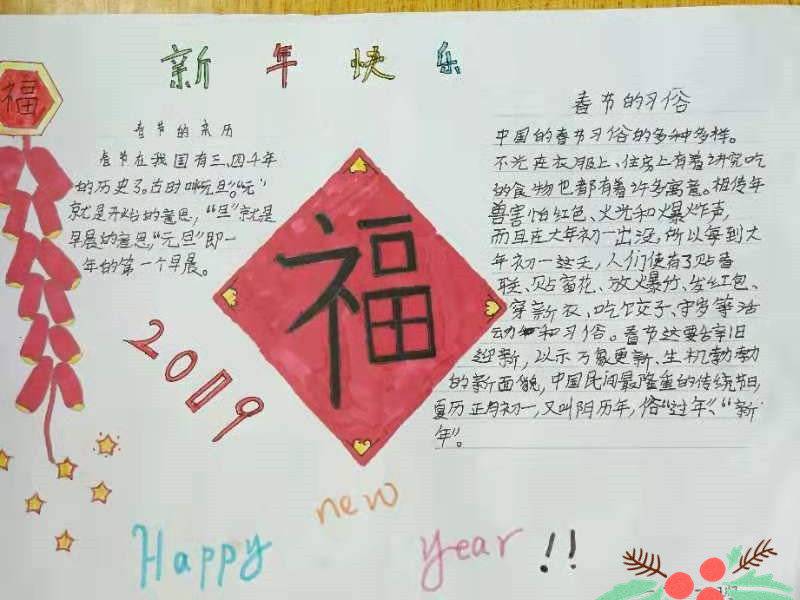 新年快乐
福
春节的来历
春节在我国有三、四千年
的历史了。古时叫"元旦"。"元"
就是开始的意思,"旦"就是
早晨的意思,"元旦"即一
年的第一个早晨。
福
2019
春节的习俗
中国的春节习俗的多种多样。
不光在衣服上、住房上有着讲究吃
的食物也都有着许多寓意。相传年
兽害怕红色、火光和爆炸声,
而且在大年初一出没,所以每到大
年初一这天,人们便有了贴春
联、贴窗花、放爆竹、发红包、
穿新衣、吃饺子、守岁等活
动和习俗。春节这要辞旧
迎新,以示万象更新、生机勃勃
的新面貌,中国民间最隆重的传统节日,
夏历正月初一,又叫阴历年,俗"过年"、"新
年"。
Happy new year!!